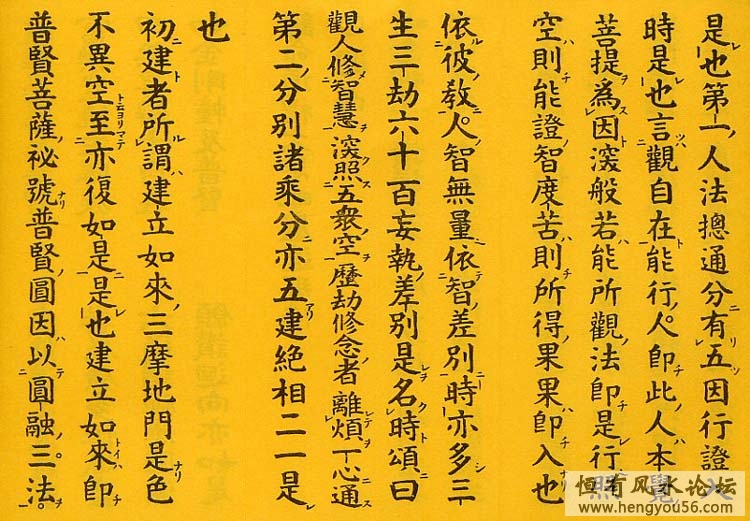 是也第一人法摠通分有五因行證入
時是也言觀自在能行人即此人本覺
菩提為因深般若能所觀法即是行照
空則能證智度苦則所得果果即入也
依彼教人智無量依智差別時亦多三
生三劫六十百妄執差別是名時頌曰
觀人修智慧深照五衆空歷劫修念者離煩一心通
第二分別諸乘分亦五建絶相二一是
也
初建者所謂建立如來三摩地門是色
不異空至亦復如是是也建立如來即
普賢菩薩祕號普賢圓因以圓融三法
恒有风水论坛
www.hengyou56.com